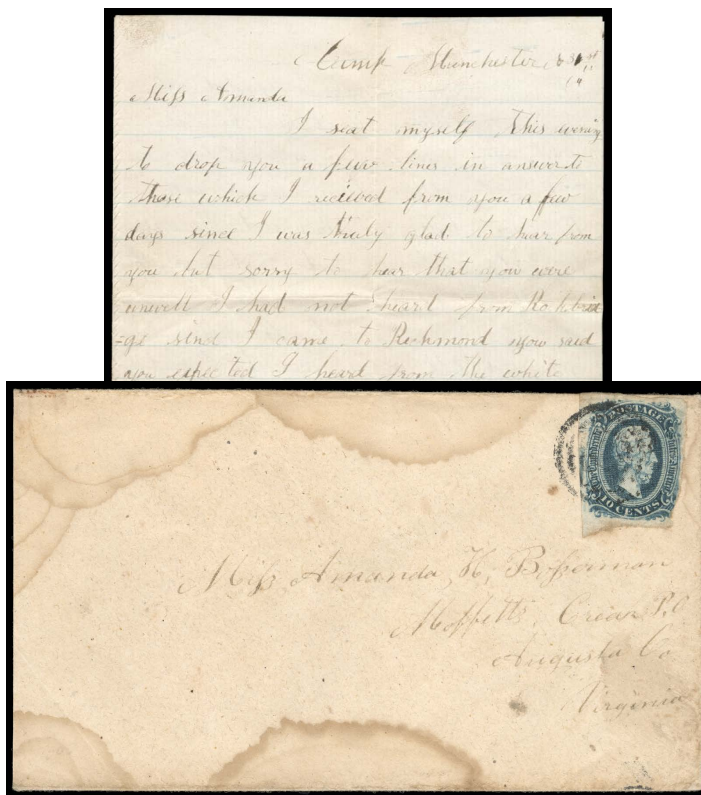 Camp Manchester
Miss Amanda
I seat myself this evening
to drop you a fiew lines in answer to
those which I recieved from you a few
days since I was truly glad to hear from
you but sorry to hear that you were
unwell I had not heard from Rockbrid
=ge since I came to Richmond you said
you expected I heard from the white
POSTAGE
10 CENTS
Miss Amanda H, Bosserman
Moffetts Creak P.O
Augusta Co
Virginia